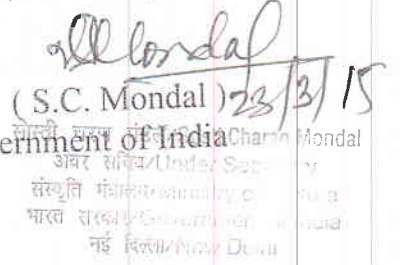 SCMondal
( S.C. Mondal ) 23/3/15
ernment of India
Charan Mondal
अवर सचिव/Under Secretary
संस्कृति मंत्रालय/Ministry of
भारत सरकार/Government of India
नई दिल्ली/New Delhi